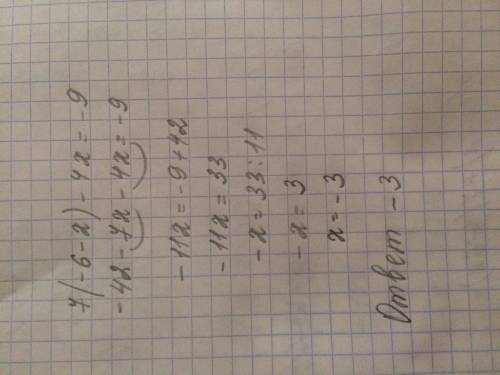 7(-6-x)-4x=-9
-42-7x-4x=-9
-11x=-9+42
-11x=33
-x=33:11
-x=3
x=-3
Ответ -3